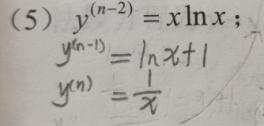 （5） y^{(n-2)} = x ln x；
y^{(n-1)} = ln x + 1
y^{(n)} = \frac{1}{x}